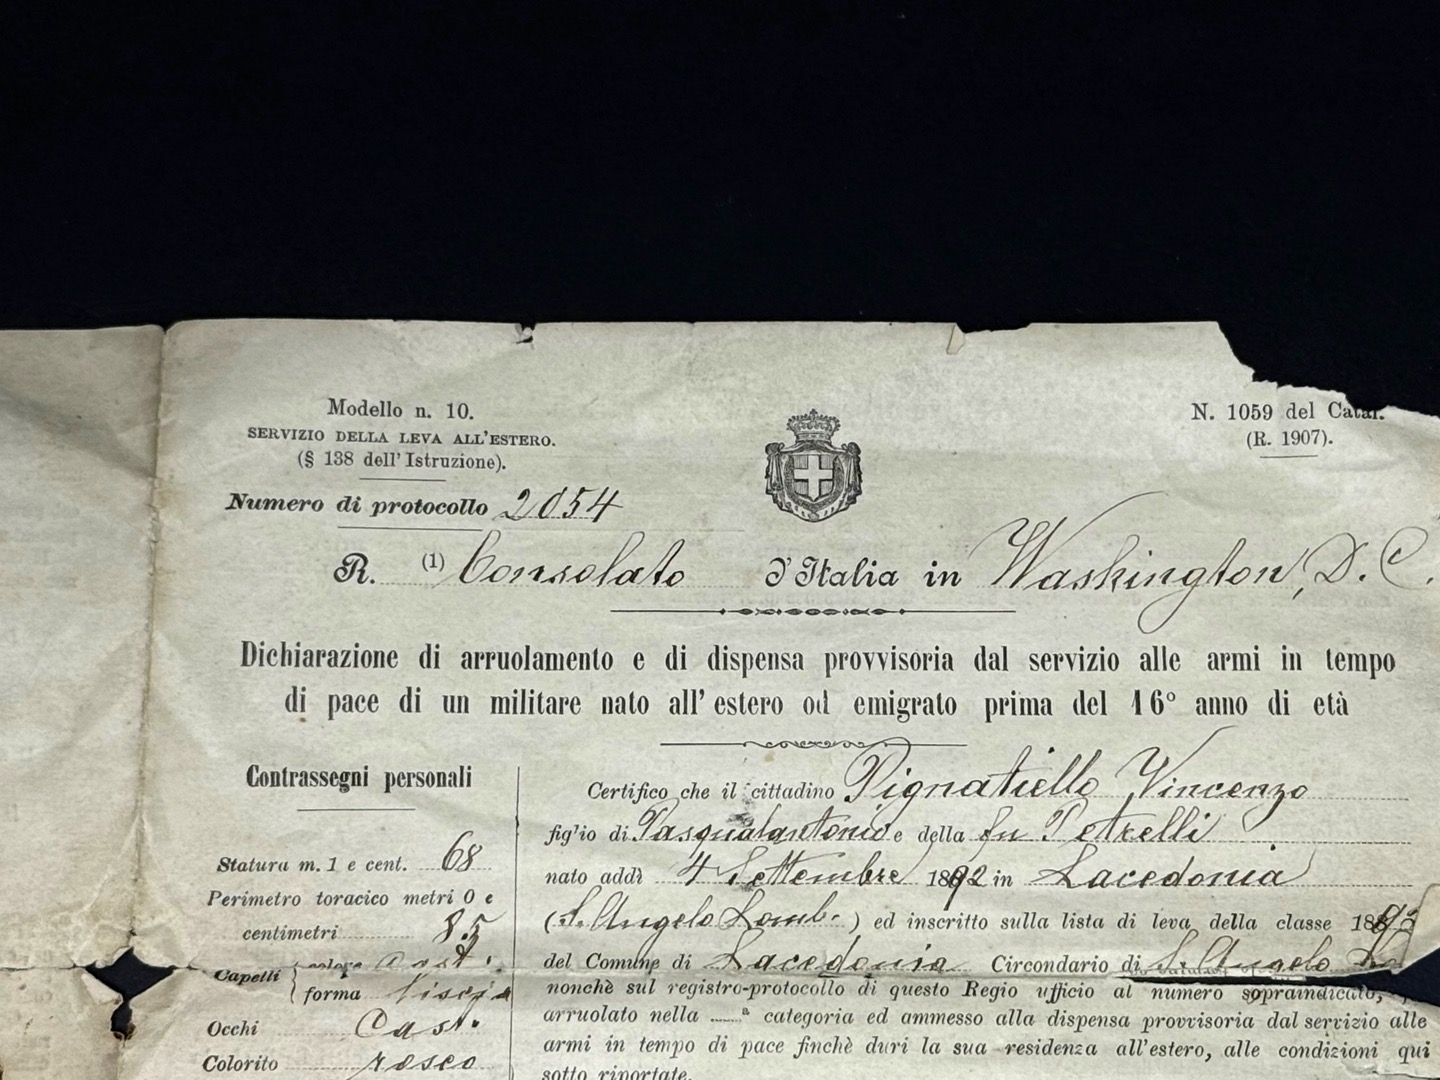 Modello n. 10.
SERVIZIO DELLA LEVA ALL'ESTERO.
(§ 138 dell'Istruzione).
N. 1059 del Catal.
(R. 1907).
Numero di protocollo 2054
R. (1) Consolato d'Italia in Washington, D. C.
Dichiarazione di arruolamento e di dispensa provvisoria dal servizio alle armi in tempo
di pace di un militare nato all'estero od emigrato prima del 16° anno di età
Contrassegni personali
Statura m. 1 e cent. 68
Perimetro toracico metri 0 e
centimetri 85
Capelli { colore Cast.
forma liscia
Occhi Cast.
Colorito roseo
Certifico che il cittadino Pignatiello Vincenzo
figlio di Pasqualantonio e della fu Petrelli
nato addì 4 Settembre 1892 in Lacedonia
(S. Angelo Lomb.) ed inscritto sulla lista di leva della classe 189
del Comune di Lacedonia Circondario di S. Angelo
nonchè sul registro-protocollo di questo Regio ufficio al numero sopraindicato,
arruolato nella ......ª categoria ed ammesso alla dispensa provvisoria dal servizio alle
armi in tempo di pace finchè duri la sua residenza all'estero, alle condizioni qui
sotto riportate.